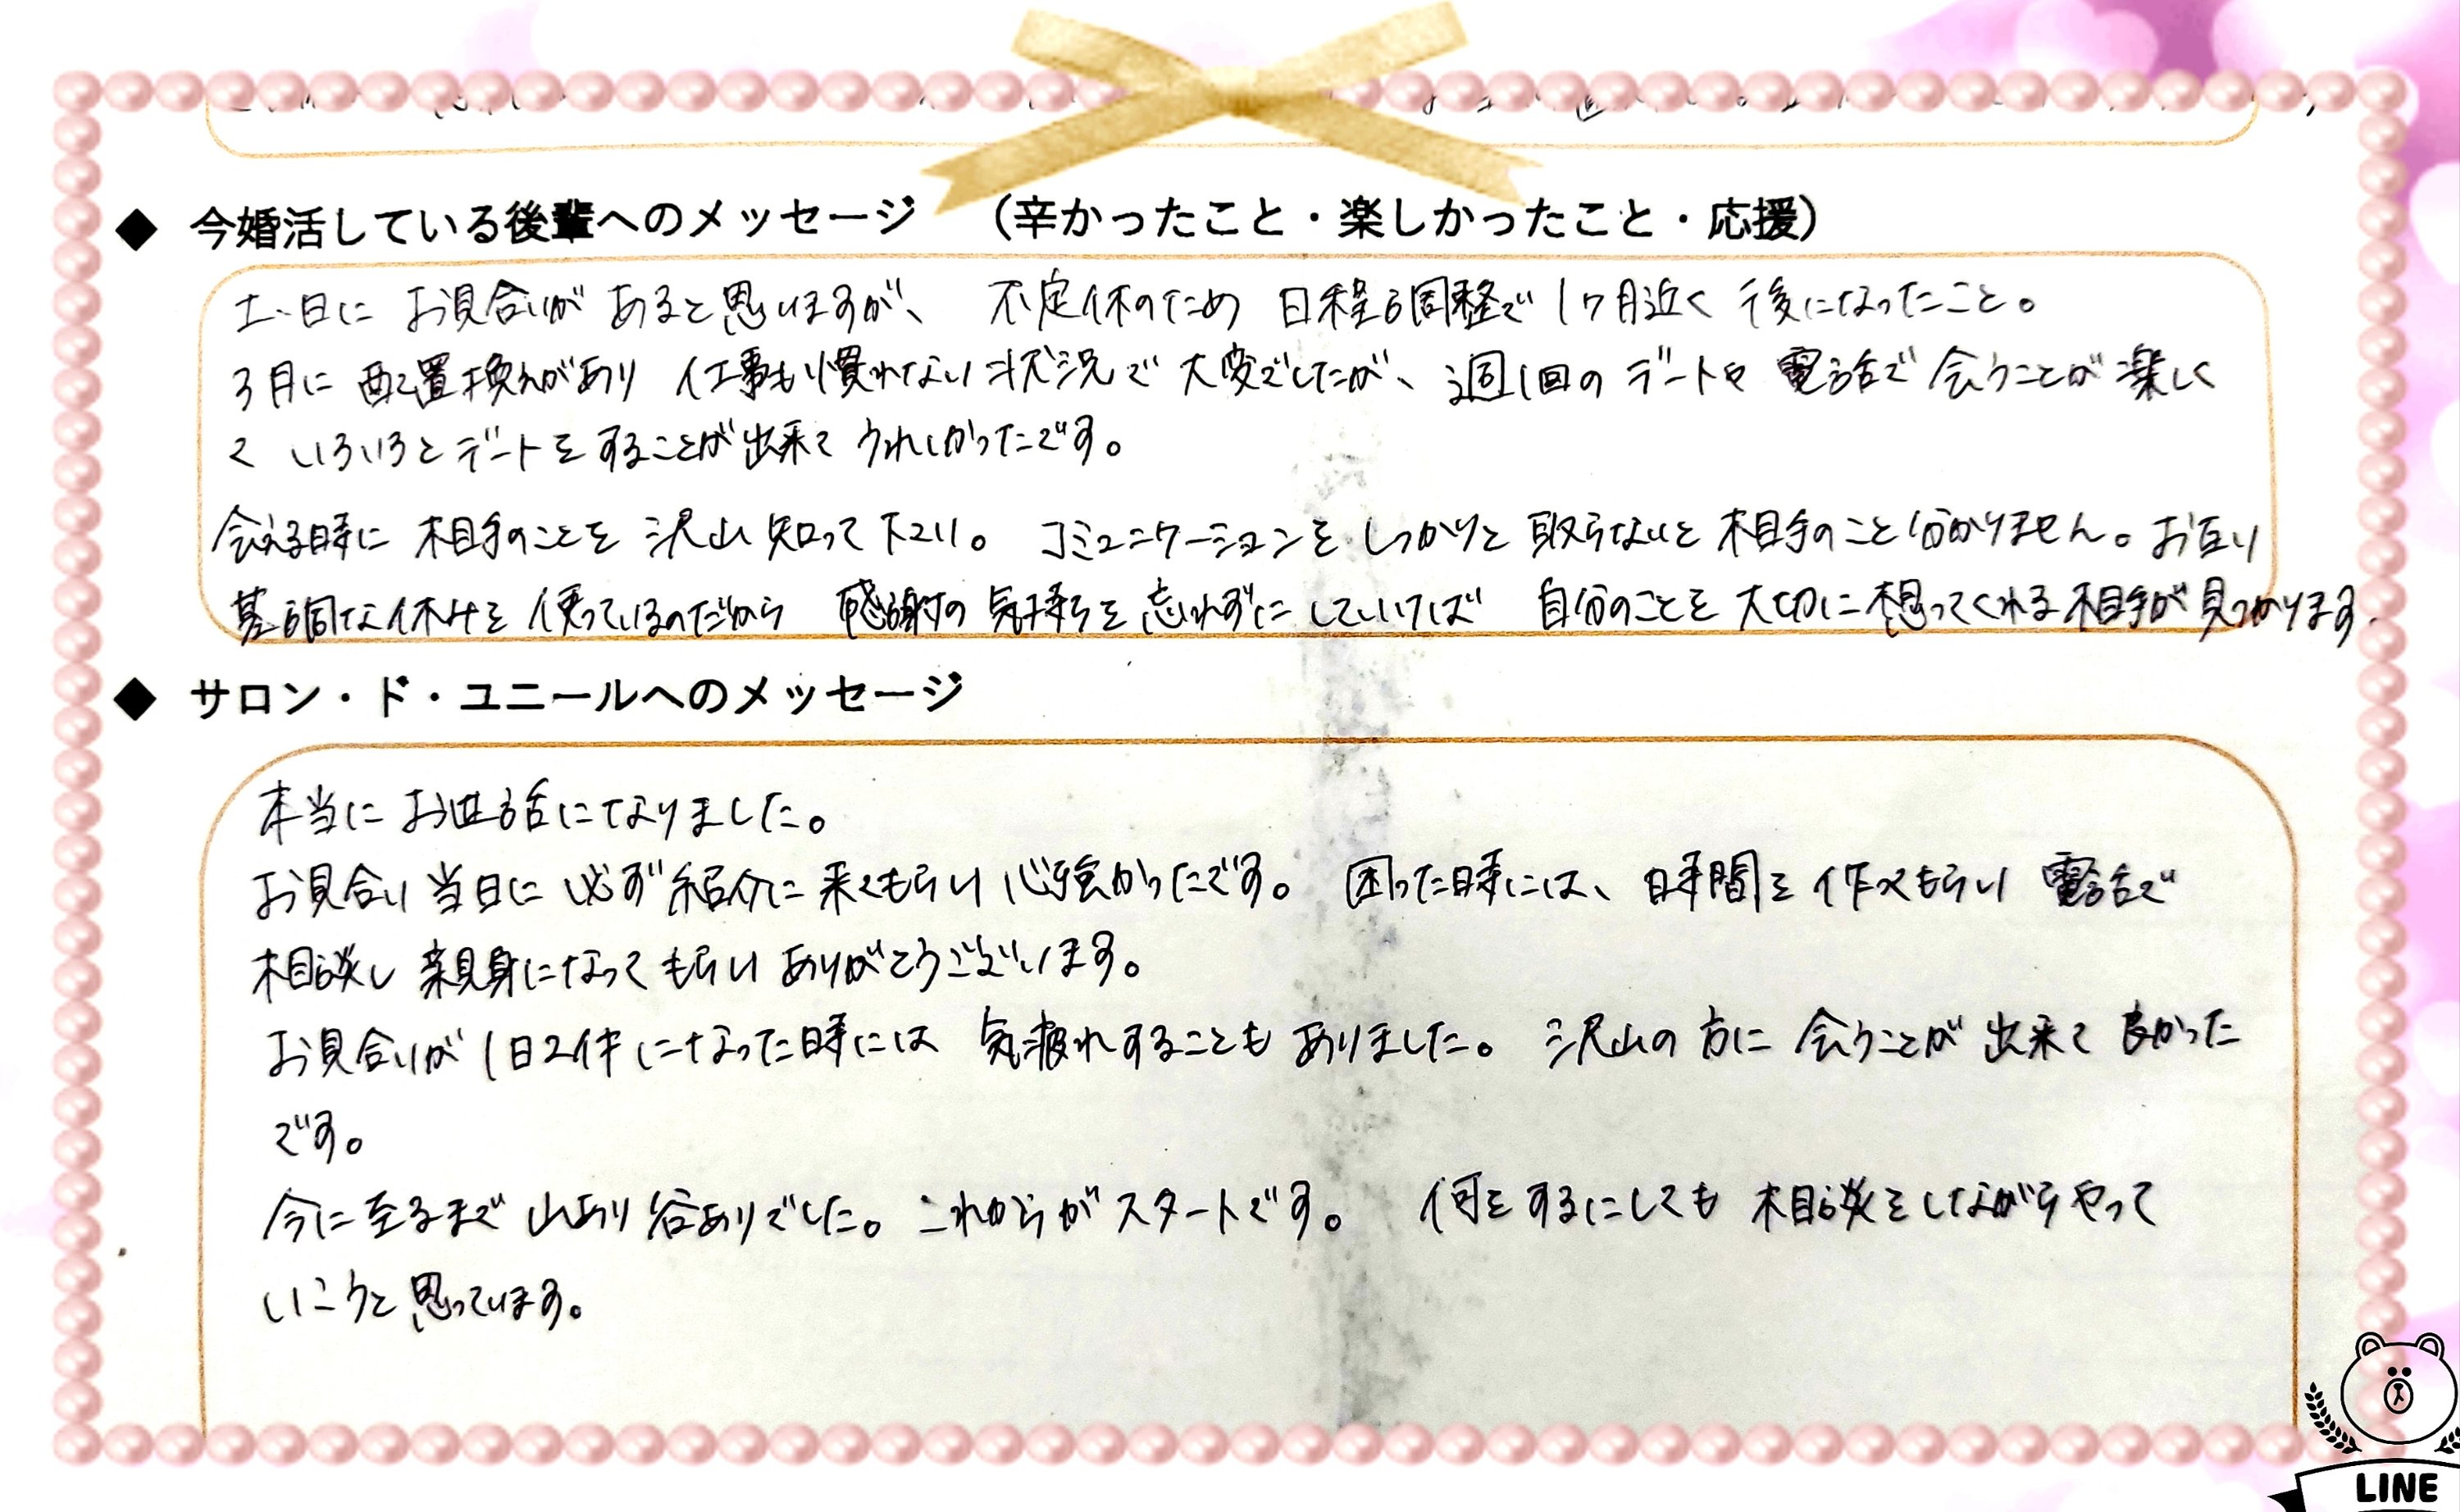 ◆ 今婚活している後輩へのメッセージ （辛かったこと・楽しかったこと・応援）
土、日に お見合いが あると思いますが、 不定休のため 日程調整で 1ヶ月近く 後になったこと。
3月に 配置換えがあり 仕事も慣れない状況で 大変でしたが、週1回の デートや 電話で 会うことが 楽しく
て いろいろと デートを することが出来て うれしかったです。
会える時に 相手のことを 沢山 知って下さい。 コミュニケーションを しっかりと 取らないと 相手のこと 分かりません。お互い
貴調な休みを 使っているのだから 感謝の 気持ちを 忘れずに していけば 自分のことを 大切に 想ってくれる 相手が 見つかります。
◆ サロン・ド・ユニールへのメッセージ
本当に お世話になりました。
お見合い 当日に 必ず 紹介に 来てもらい 心強かったです。 困った時には、時間を 作ってもらい 電話で
相談し 親身になって もらい ありがとうございます。
お見合いが 1日2件になった時には 気疲れすることも ありました。 沢山の 方に 会うことが 出来て 良かった
です。
今に 至るまで 山あり 谷ありでした。これからが スタートです。 何を するにしても 相談を しながら やって
いこうと 思っています。
LINE